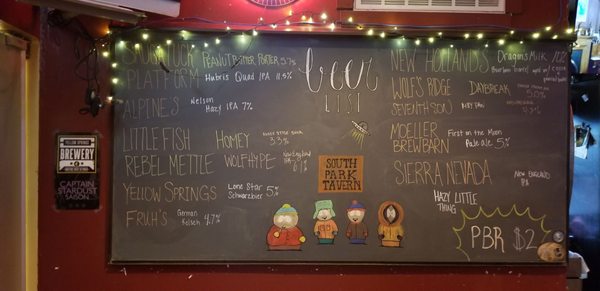 beer
LIST
SAUGATUCK PEANUT BUTTER PORTER 5.7%
PLATFORM Hubris Quad IPA 11.5%
ALPINE'S Nelson
Hazy IPA 7%
LITTLE FISH HOMEY 3.3%
REBEL METTLE WOLFHYPE New England
IPA 6.7%
YELLOW SPRINGS Lone Star 5%
Schwarzbier
FRUH'S German 4.7%
Kolsch
SOUTH
PARK
TAVERN
NEW HOLLAND'S Dragons Milk
WOLF'S RIDGE DAYBREAK 5.0%
SEVENTH SON
MOELLER First on the Moon
BREWBARN Pale ale 5%
SIERRA NEVADA NEW ENGLAND
IPA
HAZY LITTLE
THING
PBR $2
YELLOW SPRINGS
BREWERY
CAPTAIN
STARDUST
SAISON